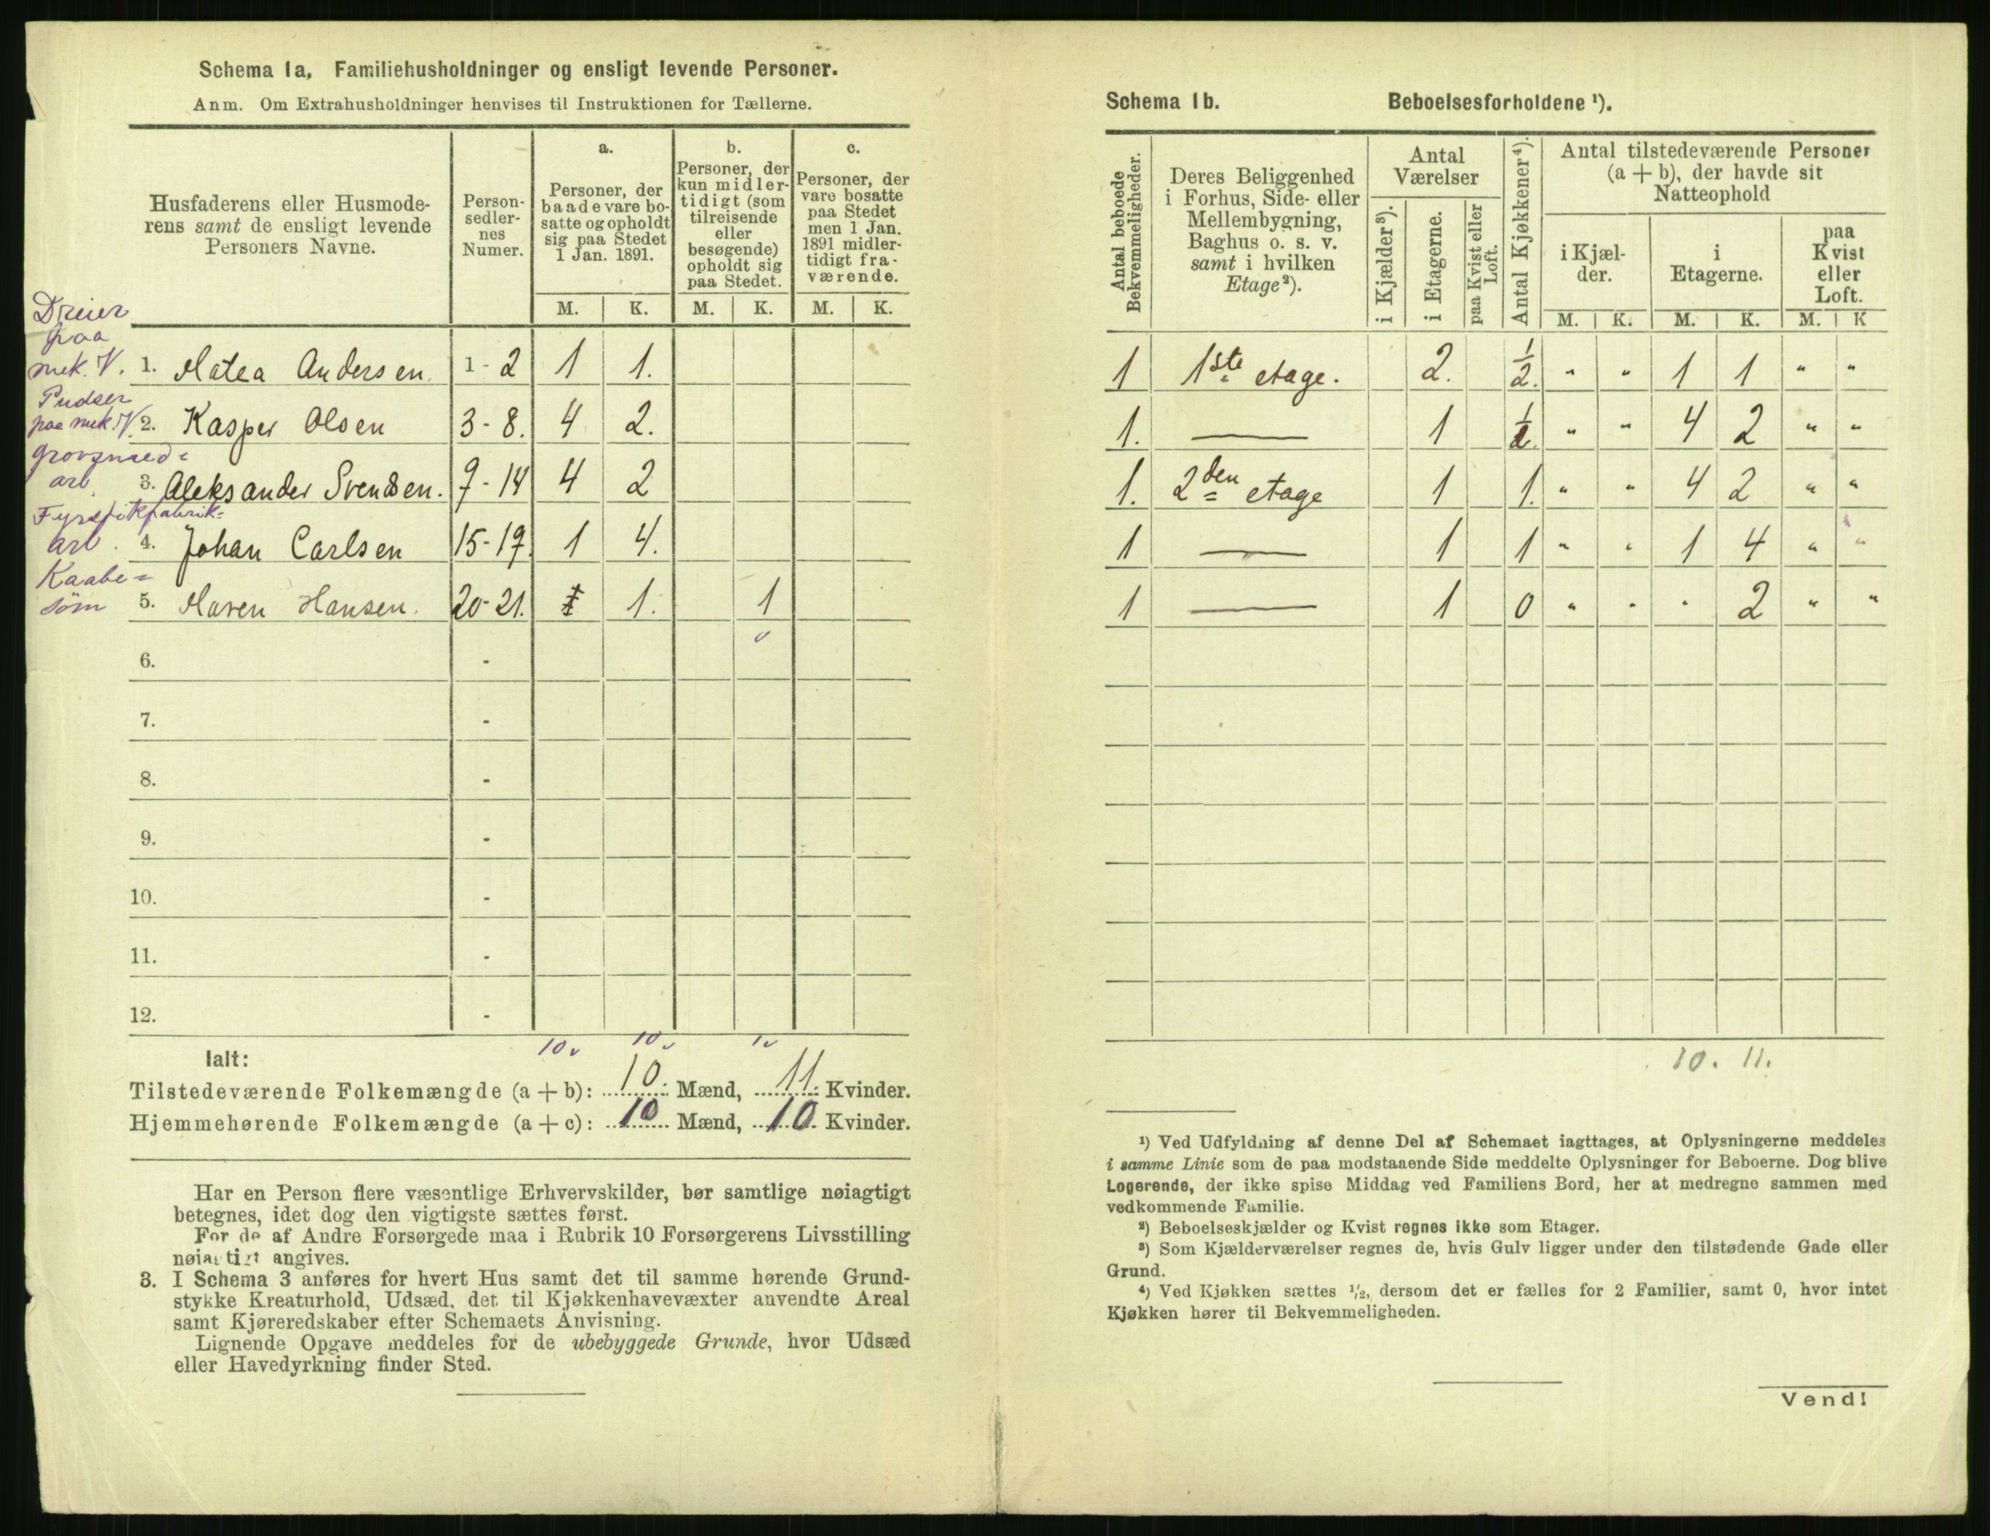 Schema 1a, Familiehusholdninger og ensligt levende Personer.
Anm. Om Extrahusholdninger henvises til Instruktionen for Tællerne.
Husfaderens eller Husmoderens samt de ensligt levende Personers Navne.
Personsedlernes Numer.
a. Personer, der baade vare bosatte og opholdt sig paa Stedet 1 Jan. 1891.
b. Personer, der kun midlertidigt (som tilreisende eller besøgende) opholdt sig paa Stedet.
c. Personer, der vare bosatte paa Stedet men 1 Jan. 1891 midlertidigt fraværende.
M. K. M. K. M. K.
Dreier paa mek. V. 1. Matea Andersen. 1-2 1 1.
Pudser paa mek. V. 2. Kasper Olsen 3-8. 4 2.
Grovsmedarb. 3. Aleksander Svendsen. 9-14 4 2
Fyrstikfabrikarb. 4. Johan Carlsen 15-19. 1 4.
Kaabesøm 5. Maren Hansen. 20-21. 1. 1
6. -
7. -
8. -
9. -
10. -
11. -
12. -
10 10 1
Ialt:
Tilstedeværende Folkemængde (a + b): 10. Mænd, 11. Kvinder.
Hjemmehørende Folkemængde (a + c): 10 Mænd, 10. Kvinder.
Har en Person flere væsentlige Erhvervskilder, bør samtlige nøiagtigt
betegnes, idet dog den vigtigste sættes først.
For de af Andre Forsørgede maa i Rubrik 10 Forsørgerens Livsstilling
nøiagtigt angives.
3. I Schema 3 anføres for hvert Hus samt det til samme hørende Grund-
stykke Kreaturhold, Udsæd, det til Kjøkkenhavevæxter anvendte Areal
samt Kjøreredskaber efter Schemaets Anvisning.
Lignende Opgave meddeles for de ubebyggede Grunde, hvor Udsæd
eller Havedyrkning finder Sted.
Schema 1b. Beboelsesforholdene ¹).
Antal beboede Bekvemmeligheder.
Deres Beliggenhed i Forhus, Side- eller Mellembygning, Baghus o. s. v. samt i hvilken Etage²).
Antal Værelser
i Kjælder³).
i Etagerne.
paa Kvist eller Loft.
Antal Kjøkkener⁴).
Antal tilstedeværende Personer (a + b), der havde sit Natteophold
i Kjælder.
i Etagerne.
paa Kvist eller Loft.
M. K. M. K. M. K
1 1ste etage. 2. 1/2. " " 1 1 " "
1. — 1 1/2. " " 4 2 " "
1. 2den etage 1 1. " " 4 2 " "
1 — 1 1 " " 1 4 " "
1 — 1 0 " " " 2 " "
10. 11.
¹) Ved Udfyldning af denne Del af Schemaet iagttages, at Oplysningerne meddeles
i samme Linie som de paa modstaaende Side meddelte Oplysninger for Beboerne. Dog blive
Logerende, der ikke spise Middag ved Familiens Bord, her at medregne sammen med
vedkommende Familie.
²) Beboelseskjælder og Kvist regnes ikke som Etager.
³) Som Kjælderværelser regnes de, hvis Gulv ligger under den tilstødende Gade eller
Grund.
⁴) Ved Kjøkken sættes 1/2, dersom det er fælles for 2 Familier, samt 0, hvor intet
Kjøkken hører til Bekvemmeligheden.
Vend!